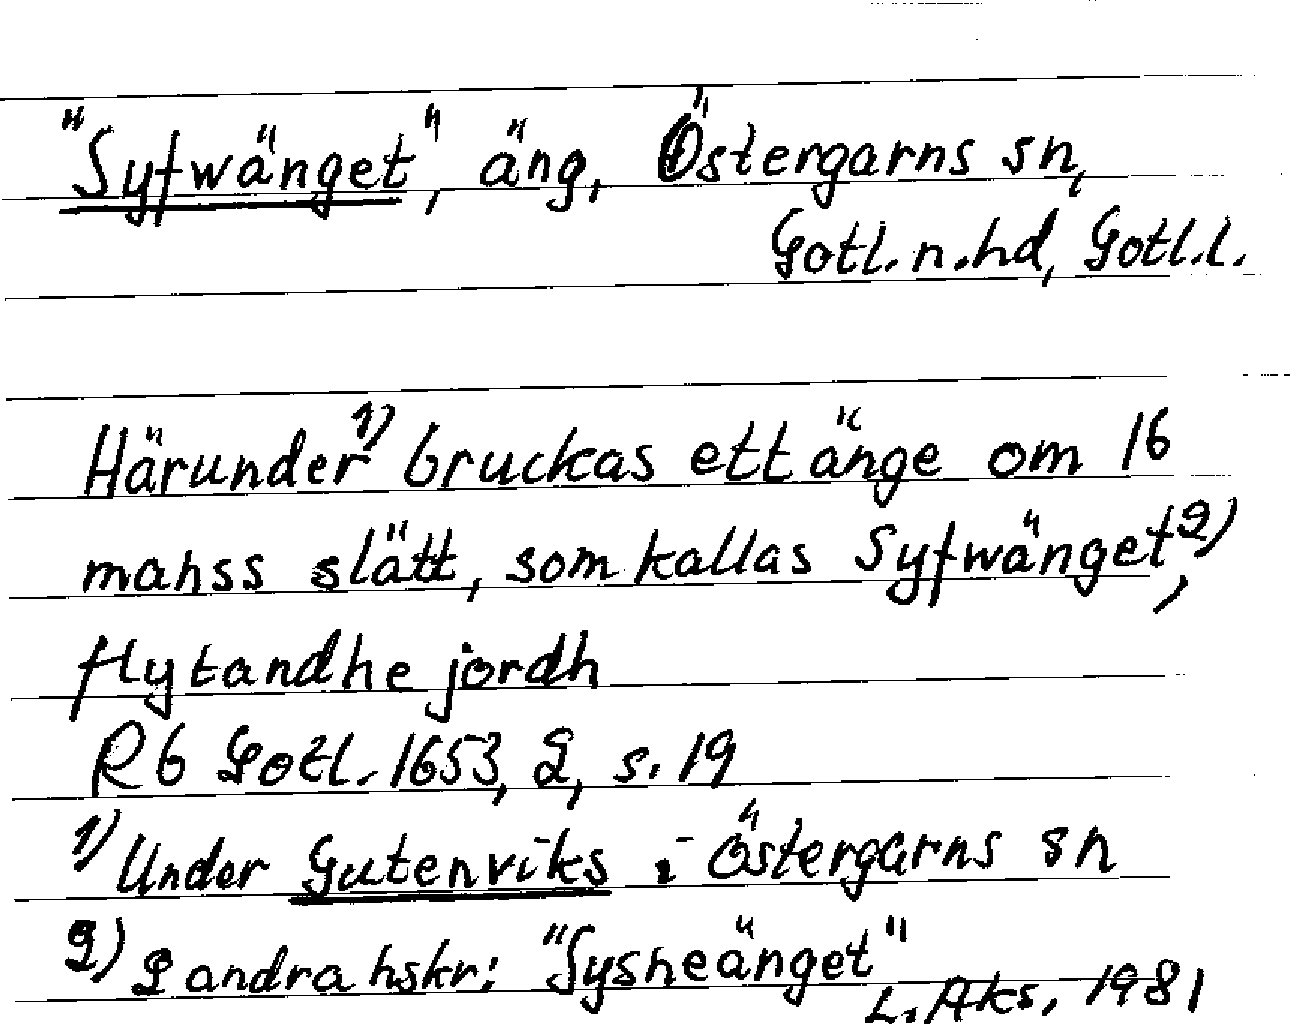 "Syfwänget", äng, Östergarns sn,
Gotl. n. hd, Gotl. l.
Härunder 1) bruckas ett änge om 16
manss slätt, som kallas Syfwänget, 2)
flytandhe jordh
Rb Gotl. 1653, 2, s. 19
1) Under Gutenviks i Östergarns sn
2) 2 andra hskr: "Sysneänget"
L. Aks, 1981